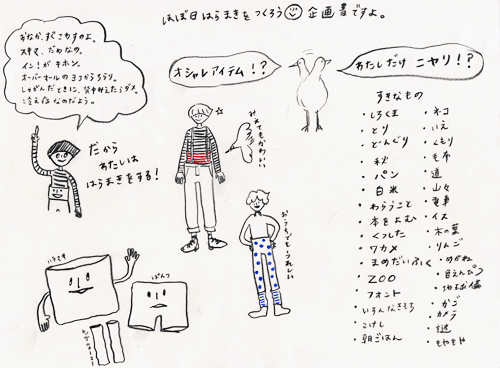 ほぼ日はらまきをつくろう 企画書ですよ。
おなか、すぐこわすのよ。
スキマ、だめなの。
イン!がキホン。
オーバーオールのヨコからちらり。
しゃがんだときに、背中みえたらダメ。
冷えはなのだよう。
だから
わたしは
はらまきをする!
オシャレアイテム!?
わたしだけ ニヤリ!?
みえてもかわいい
おうちでもうれしい
はらまき
ぱんつ
すきなもの
・しろくま
・とり
・どんぐり
・秋
・パン
・白米
・わらうこと
・本をよむ
・くつした
・ワカメ
・まめだいふく
・ZOO
・フォント
・いろんなきもち
・こけし
・朝ごはん
・ネコ
・いえ
・くもり
・毛布
・道
・山々
・電車
・イス
・木の葉
・りんご
・めがね
・色えんぴつ
・地球儀
・かご
・カメラ
・謎
・もやもや